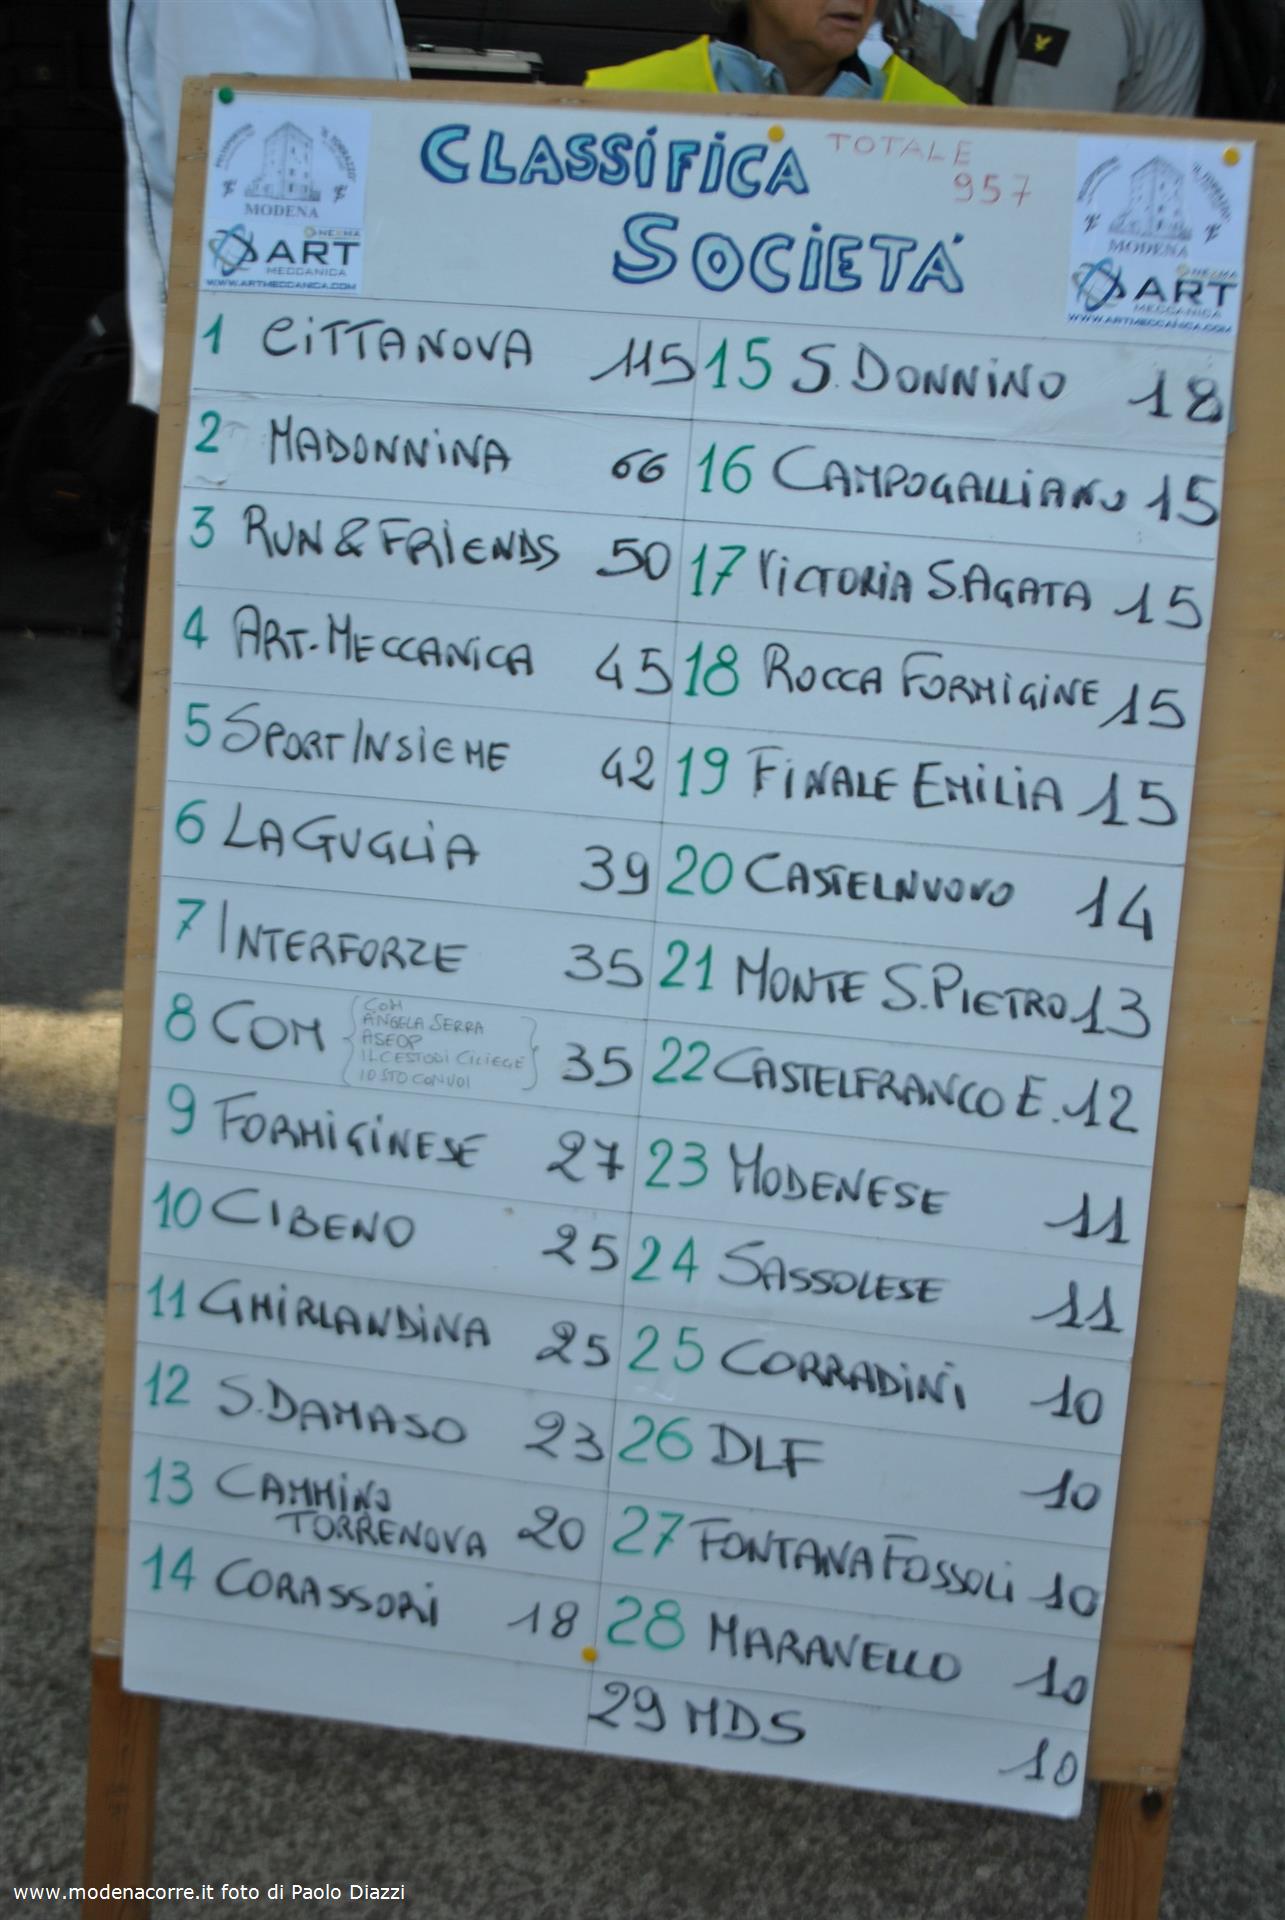 CLASSIFICA
SOCIETÁ
TOTALE
957
MODENA
NEXMA
ART
MECCANICA
WWW.ARTMECCANICA.COM
"IL TORRAZZO"
MODENA
NEXMA
ART
MECCANICA
WWW.ARTMECCANICA.COM
1 CITTANOVA 115
2 MADONNINA 66
3 RUN & FRIENDS 50
4 ART-MECCANICA 45
5 SPORTINSIEME 42
6 LA GUGLIA 39
7 INTERFORZE 35
8 COM 35
COM
ANGELA SERRA
ASEOP
IL CESTO DI CILIEGE
IO STO CON VOI
9 FORMIGINESE 27
10 CIBENO 25
11 GHIRLANDINA 25
12 S.DAMASO 23
13 CAMMINO
TORRENOVA 20
14 CORASSORI 18
15 S.DONNINO 18
16 CAMPOGALLIANO 15
17 VICTORIA S.AGATA 15
18 ROCCA FORMIGINE 15
19 FINALE EMILIA 15
20 CASTELNUOVO 14
21 MONTE S.PIETRO 13
22 CASTELFRANCO E. 12
23 MODENESE 11
24 SASSOLESE 11
25 CORRADINI 10
26 DLF 10
27 FONTANAFOSSOLI 10
28 MARANELLO 10
29 MDS 10
www.modenacorre.it foto di Paolo Diazzi